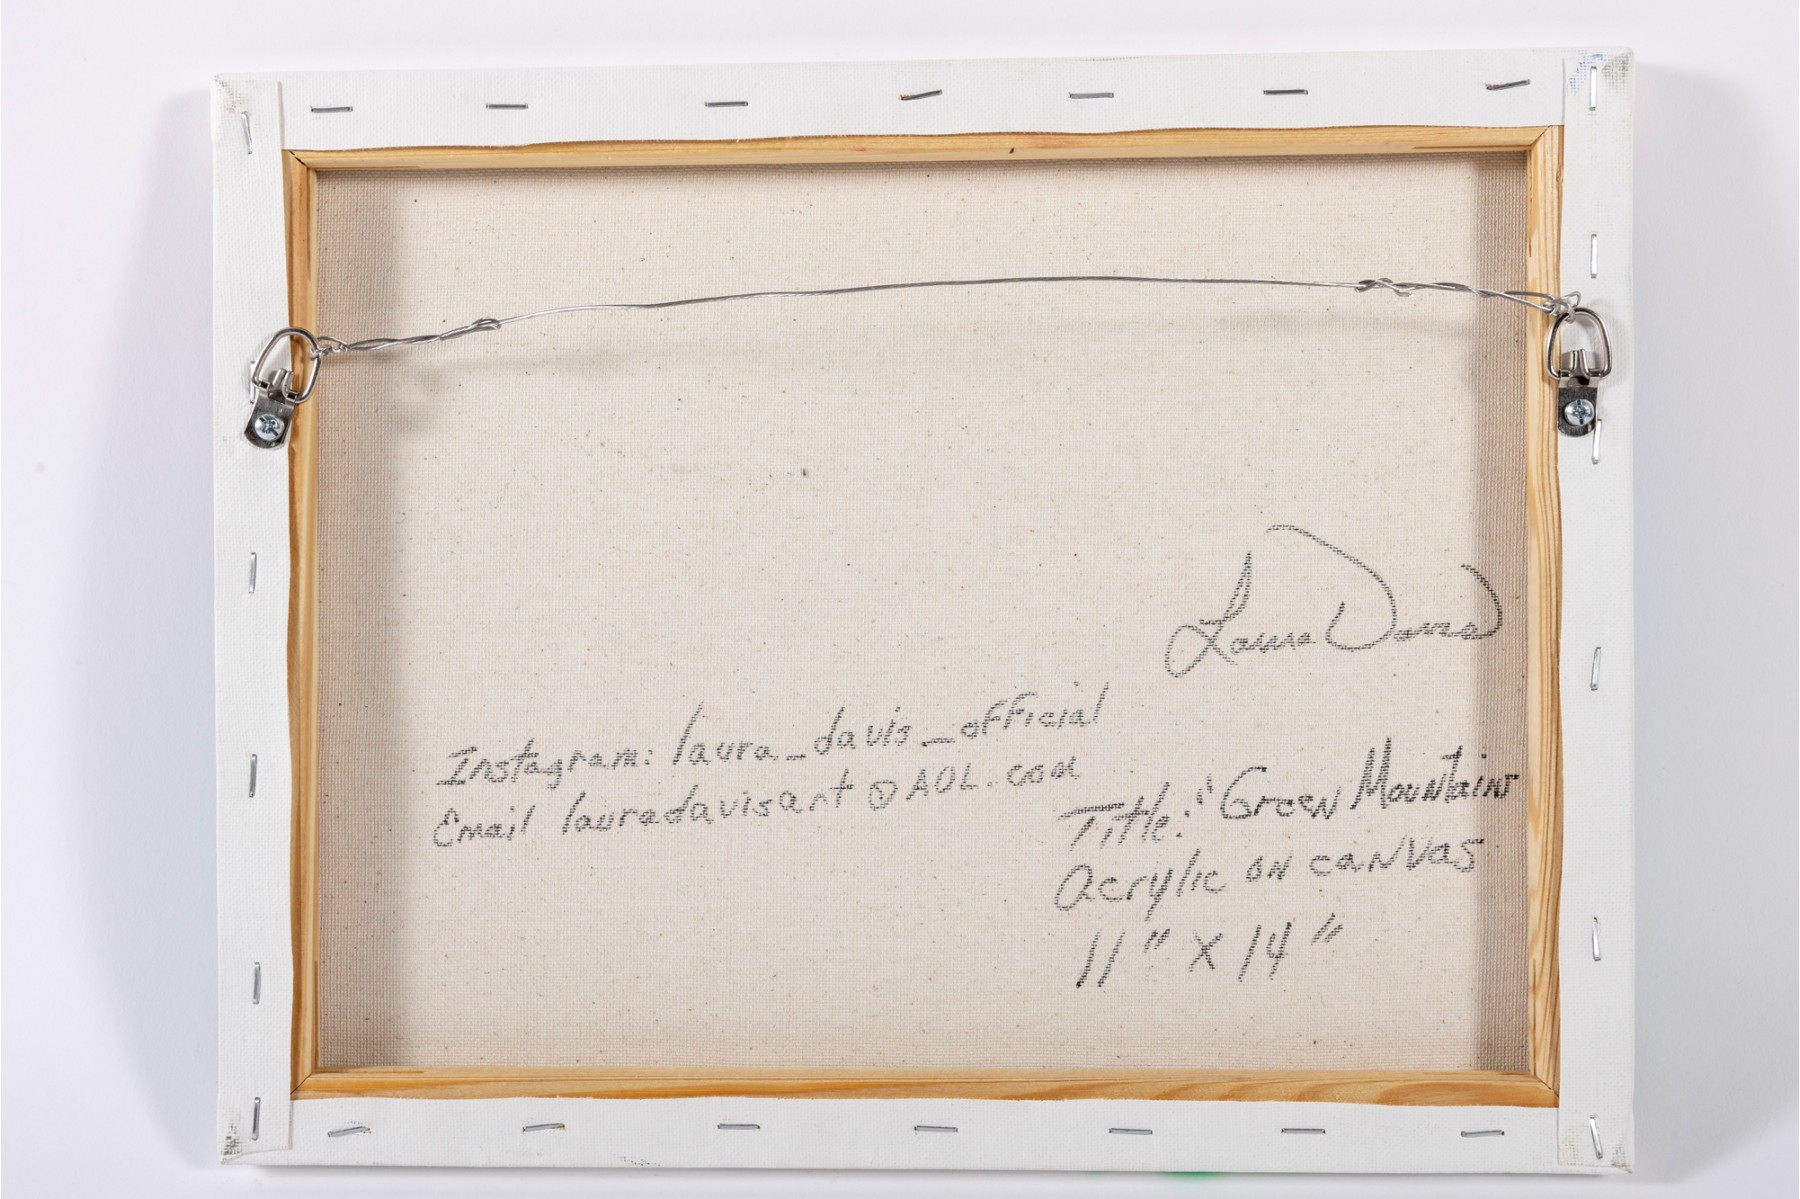 Laura Davis
Instagram: laura_davis_official
Email lauradavisart@AOL.com
Title: "Green Mountains
Acrylic on canvas
11" x 14"